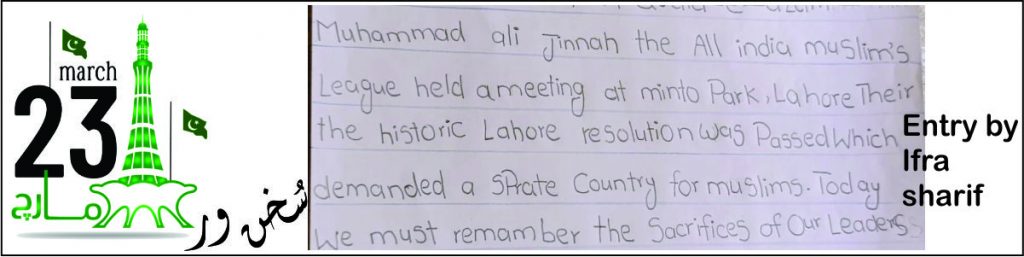 march
23
مارچ
سُخن ور
Muhammad ali Jinnah the All india muslim's
League held a meeting at minto Park, Lahore Their
the historic Lahore resolution was Passed Which
demanded a sPrate Country for muslims. Today
We must remamber the Sacrifices of Our Leaders
Entry by
Ifra
sharif